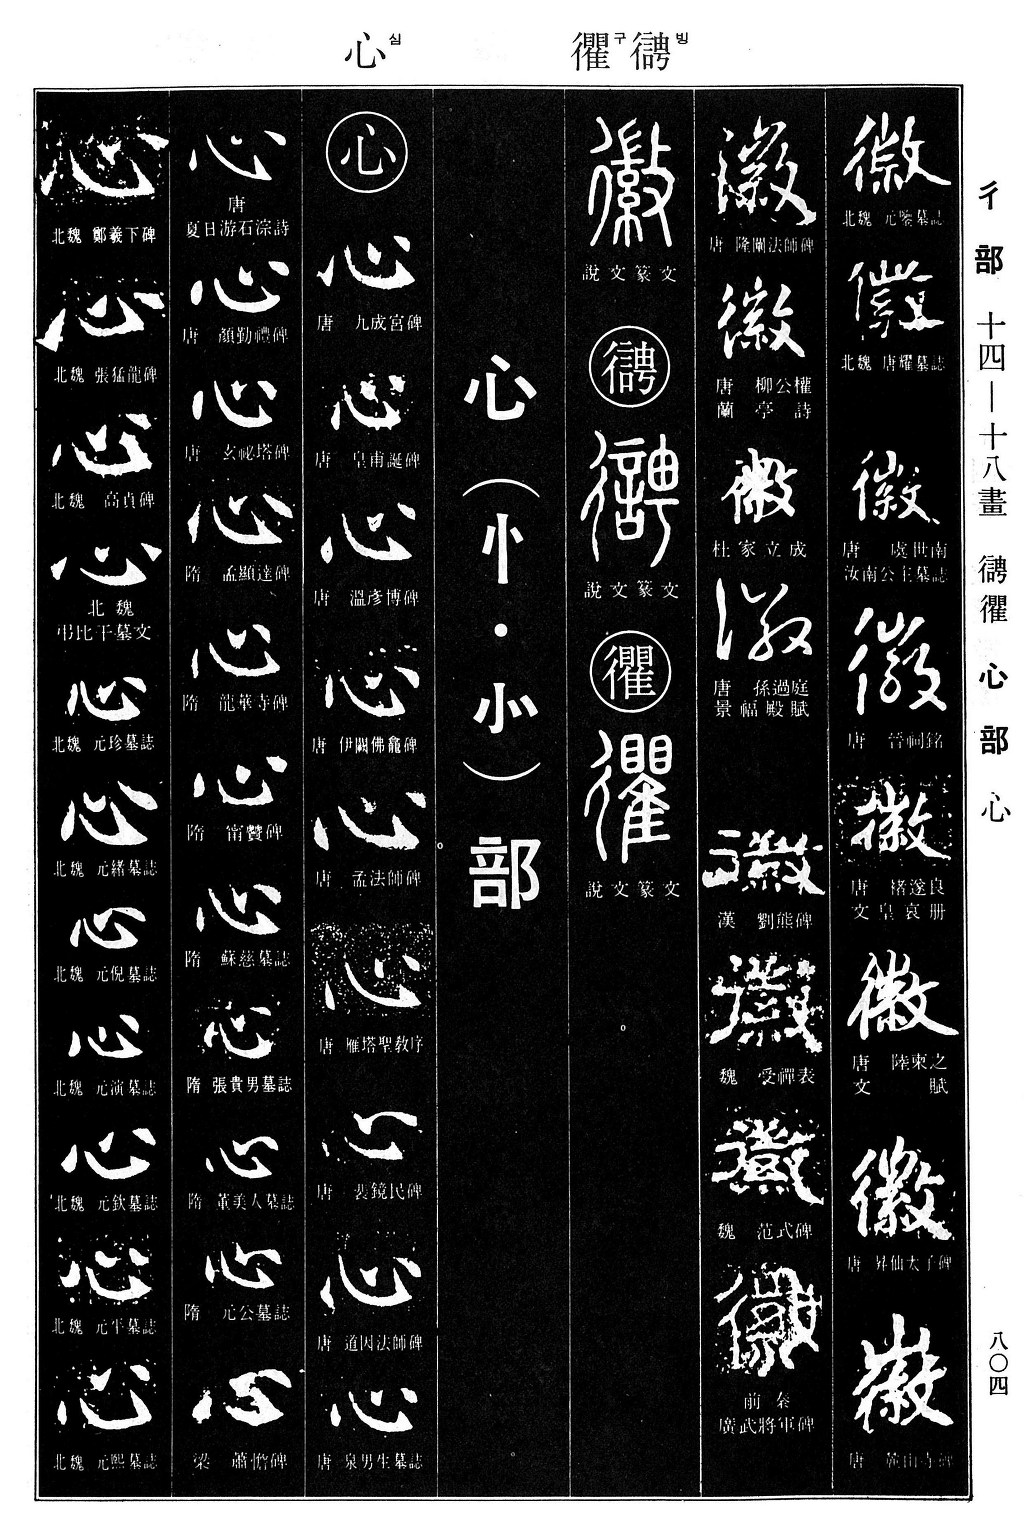 心심 衢구 㣔빙
彳部 十四—十八畫 㣔衢 心部 心
八〇四
徽
北魏 元鑒墓誌
徽
北魏 唐耀墓誌
徽
唐 虞世南
汝南公主墓誌
徽
唐 晉祠銘
徽
唐 褚遂良
文皇哀册
徽
唐 陸柬之
文賦
徽
唐 昇仙太子碑
徽
徽
唐 隆闡法師碑
徽
唐 柳公權
蘭亭詩
徽
杜家立成
徽
唐 孫過庭
景福殿賦
徽
漢 劉熊碑
徽
魏 受禪表
徽
魏 范式碑
徽
前秦
廣武將軍碑
徽
說文篆文
說文篆文
說文篆文
心(忄·㣺)部
心
心
唐 九成宮碑
心
唐 皇甫誕碑
心
唐 溫彥博碑
心
唐 伊闕佛龕碑
心
唐 孟法師碑
心
唐 雁塔聖敎序
心
唐 裴鏡民碑
心
唐 道因法師碑
心
唐 泉男生墓誌
心
唐
夏日游石淙詩
心
唐 顏勤禮碑
心
唐 玄祕塔碑
心
隋 孟顯達碑
心
隋 龍華寺碑
心
隋 甯贊碑
心
隋 蘇慈墓誌
心
隋 張貴男墓誌
心
隋 董美人墓誌
心
隋 元公墓誌
心
梁 蕭憺碑
心
北魏 鄭羲下碑
心
北魏 張猛龍碑
心
北魏 高貞碑
心
北魏
弔比干墓文
心
北魏 元珍墓誌
心
北魏 元緒墓誌
心
北魏 元倪墓誌
心
北魏 元演墓誌
心
北魏 元欽墓誌
心
北魏 元平墓誌
心
北魏 元熙墓誌